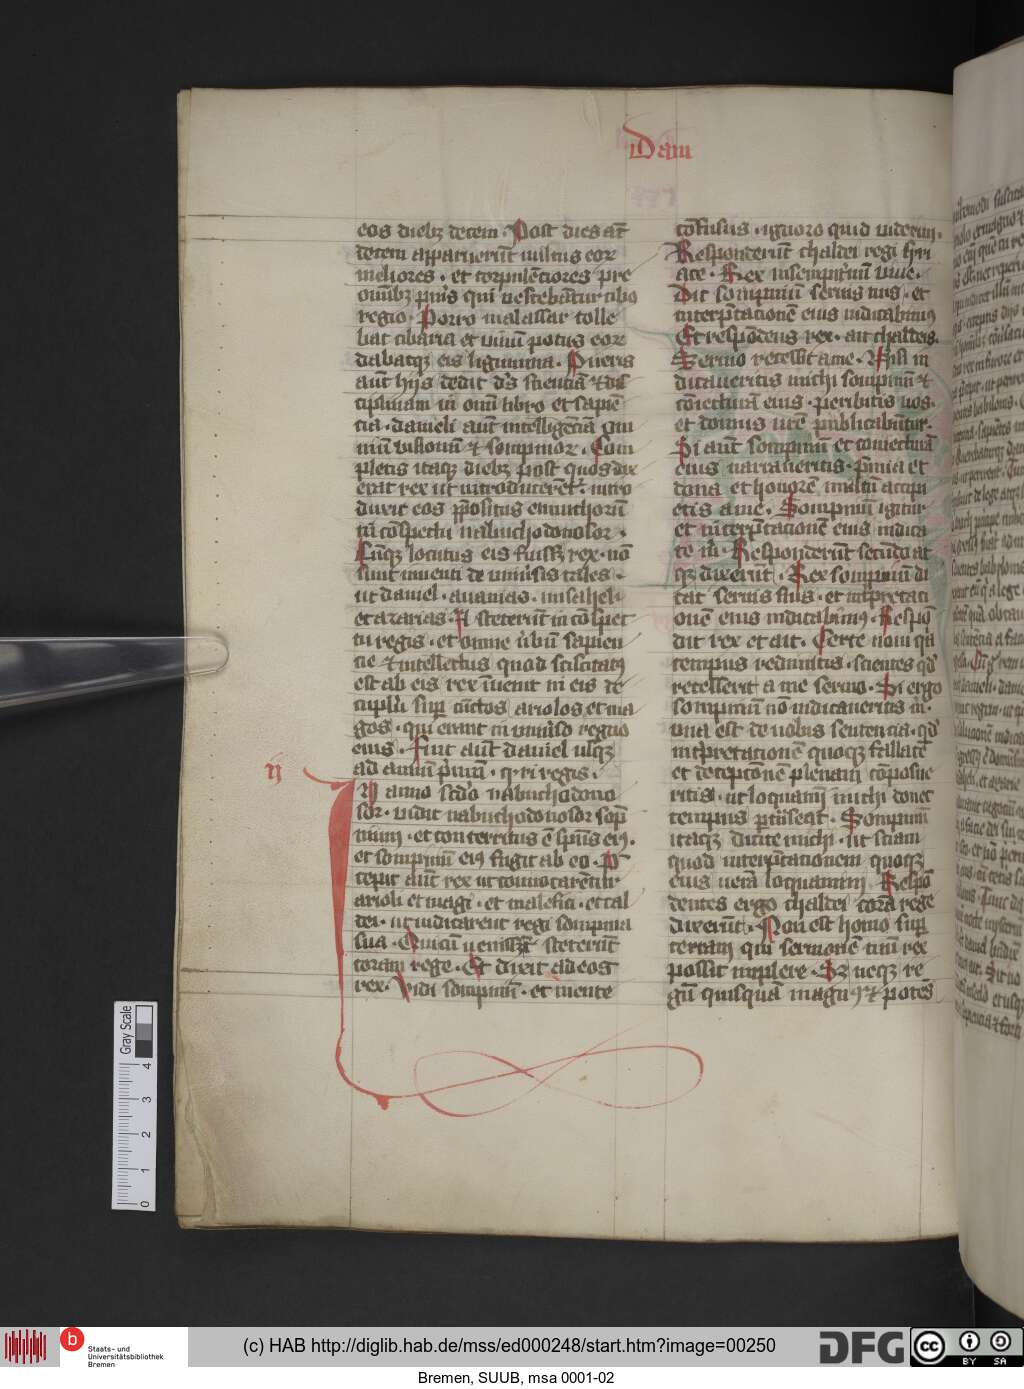 Dani
eos dieb; decem. Post dies aūt
decem apparuerūt vultus eoꝝ
meliores. et corpulēciores pre
omīb; puīs qui vescebāntur cibo
regio. Porro malassar tolle
bat cibaria et vinū potus eoꝝ
dabatqꝫ eis legumina. Pueris
aūt hijs dedit dūs sciencīā ⁊ dis
ciplinam in omī libro et sapīe
cia. danieli aūt intelligēciā om
niū visionū ⁊ sompnioꝝ. Com
pletis itaqꝫ dieb; post quos dix
erat rex ut introducerēt̄. intro
duxit eos p̄positus eunuchorū
ī cōspectu nabuchodonosor.
Cūqꝫ locutus eis fuiss; rex. nō
sunt inuenti de vniūsis tales.
ut daniel. ananias. misahel.
et azarias. Et steterūt in cōspec
tu regis. et omne ūbū sapien
cie ⁊ intellectus quod sciscitatꝰ
est ab eis rex īuenit in eis de
cuplū sup̄ cūctos ariolos et ma
gos. qui erant in vniūso regno
eius. Fuit aūt daniel usqꝫ
ad annū p̄mū. cyri regis.
ij
IN anno scd̄o nabuchodono
sor. vidit nabuchodonosor sop̄
nium. et conterritus ē spūs eiꝰ.
et sompniū eiꝰ fugit ab eo. P̄
cepit aūt rex ut conuocarentur
arioli et magi. et malefici. et cal
dei. ut indicarent regi sompnia
sua. Qui cū venissēt steterūt
coram rege. Et dixit ad eos
rex. Vidi sompniū. et mente
cōfusus. ignoro quid viderim.
Responderūt chaldei regi siri
ace. Rex insempit̄nū viue.
Dic sompniū seruis tuis. et
interp̄tacionē eius indicabimꝰ
Et respondens rex. ait chaldeis.
Sermo recessit a me. Nisi in
dicaueritis michi sompniū ⁊
cōiecturā eius. peribitis vos.
et domus vr̄e publicabūtur.
Si aūt sompniū et coniecturā
eius narraueritis. p̄mia et
dona et honorē multū accipi
etis a me. Sompniū igitur
et īterp̄tacionē eius indica
te m̄. Responderūt secūdo at
qꝫ dixerūt. Rex sompniū di
cat seruis suis. et īterp̄taci
onē eius indicabimꝰ. Respō
dit rex et ait. Certe noui q̄a
tempus redimitis. scientes qd̄
recesserit a me sermo. Si ergo
sompniū nō indicaueritis m̄.
vna est de vobis sentencia. qd̄
interpretacionē quoqꝫ fallacē
et decepcionē plenam cōposue
ritis. ut loquamī michi donec
tempus p̄transeat. Sompniū
itaqꝫ dicite michi. ut sciam
quod interp̄tacionem quoqꝫ
eius verā loquamini. Respō
dentes ergo chaldei corā rege
dixerūt. Non est homo sup̄
terram qui sermonē tuū rex
possit implere. S; neqꝫ re
gū quisquā magnꝰ ⁊ potēs
Gray Scale
4
3
2
1
0
b Staats- und
Universitätsbibliothek
Bremen
(c) HAB http://diglib.hab.de/mss/ed000248/start.htm?image=00250
DFG
cc
BY SA
Bremen, SUUB, msa 0001-02